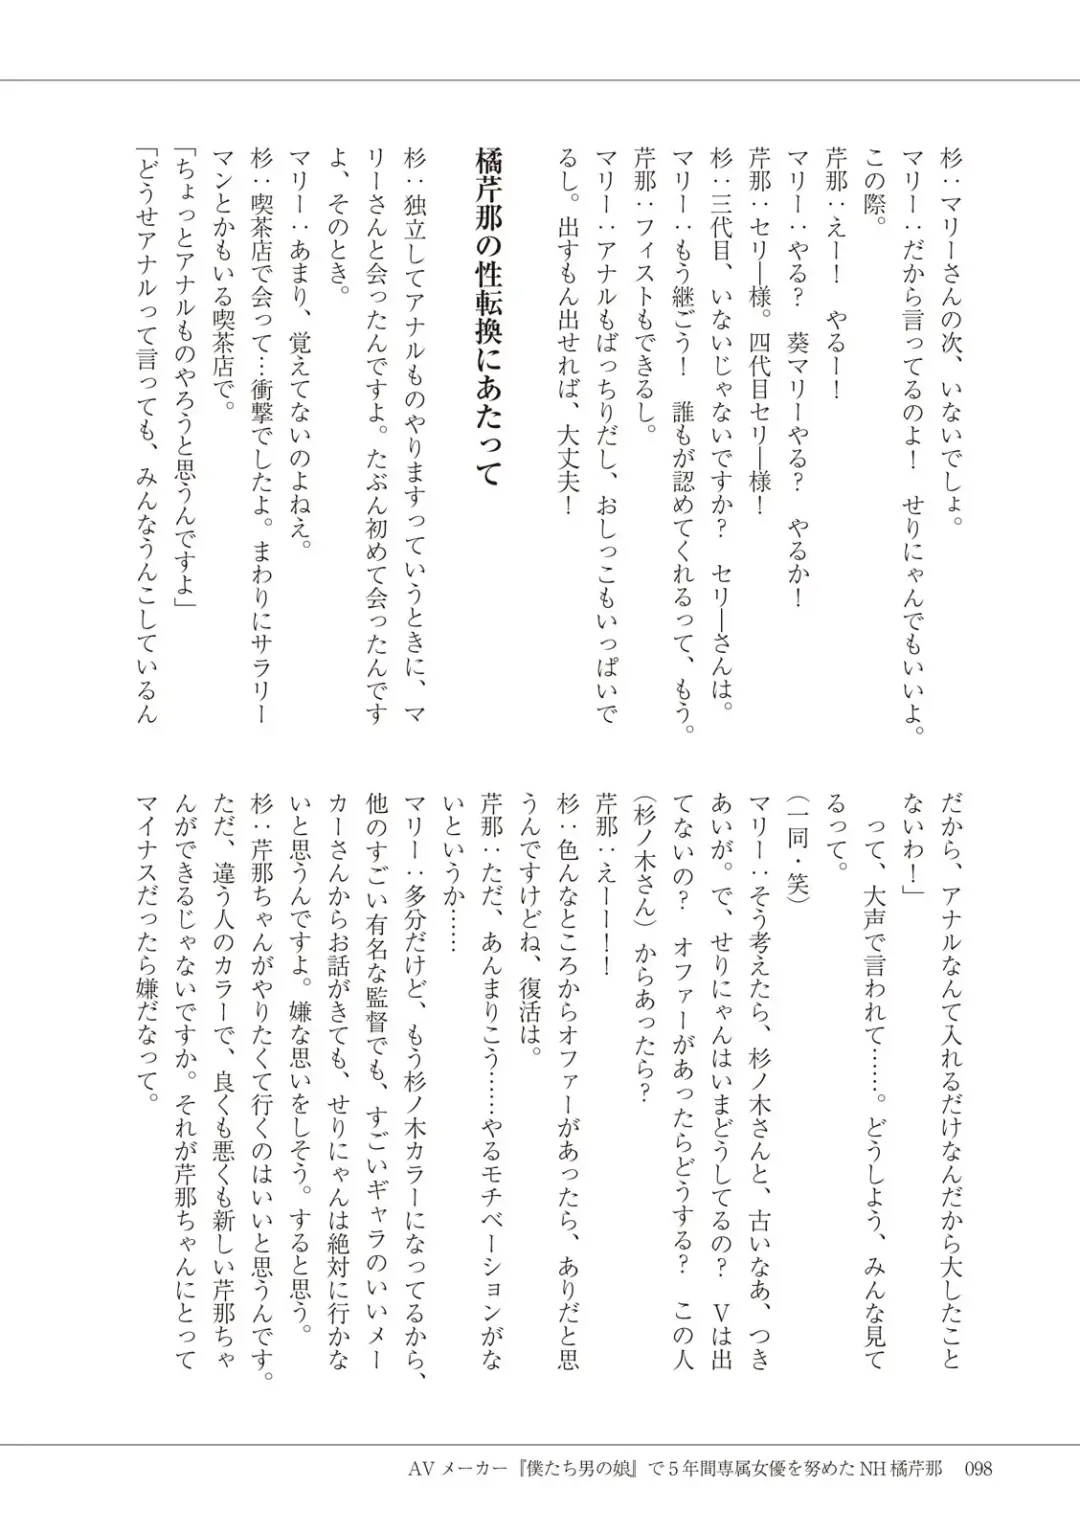 杉：マリーさんの次、いないでしょ。
マリー：だから言ってるのよ！　せりにゃんでもいいよ。
この際。
芹那：えー！　やるー！
マリー：やる？　葵マリーやる？　やるか！
芹那：セリー様。四代目セリー様！
杉：三代目、いないじゃないですか？　セリーさんは。
マリー：もう継ごう！　誰もが認めてくれるって、もう。
芹那：フィストもできるし。
マリー：アナルもばっちりだし、おしっこもいっぱいで
るし。出すもん出せれば、大丈夫！
橘芹那の性転換にあたって
杉：独立してアナルものやりますっていうときに、マ
リーさんと会ったんですよ。たぶん初めて会ったんです
よ、そのとき。
マリー：あまり、覚えてないのよねえ。
杉：喫茶店で会って…衝撃でしたよ。まわりにサラリー
マンとかもいる喫茶店で。
「ちょっとアナルものやろうと思うんですよ」
「どうせアナルって言っても、みんなうんこしているん
だから、アナルなんて入れるだけなんだから大したこと
ないわ！」
　って、大声で言われて……。どうしよう、みんな見て
るって。
（一同・笑）
マリー：そう考えたら、杉ノ木さんと、古いなあ、つき
あいが。で、せりにゃんはいまどうしてるの？　Ｖは出
てないの？　オファーがあったらどうする？　この人
（杉ノ木さん）からあったら？
芹那：えーー！！
杉：色んなところからオファーがあったら、ありだと思
うんですけどね、復活は。
芹那：ただ、あんまりこう……やるモチベーションがな
いというか……
マリー：多分だけど、もう杉ノ木カラーになってるから、
他のすごい有名な監督でも、すごいギャラのいいメー
カーさんからお話がきても、せりにゃんは絶対に行かな
いと思うんですよ。嫌な思いをしそう。すると思う。
杉：芹那ちゃんがやりたくて行くのはいいと思うんです。
ただ、違う人のカラーで、良くも悪くも新しい芹那ちゃ
んができるじゃないですか。それが芹那ちゃんにとって
マイナスだったら嫌だなって。
AVメーカー『僕たち男の娘』で5年間専属女優を努めたNH橘芹那　098